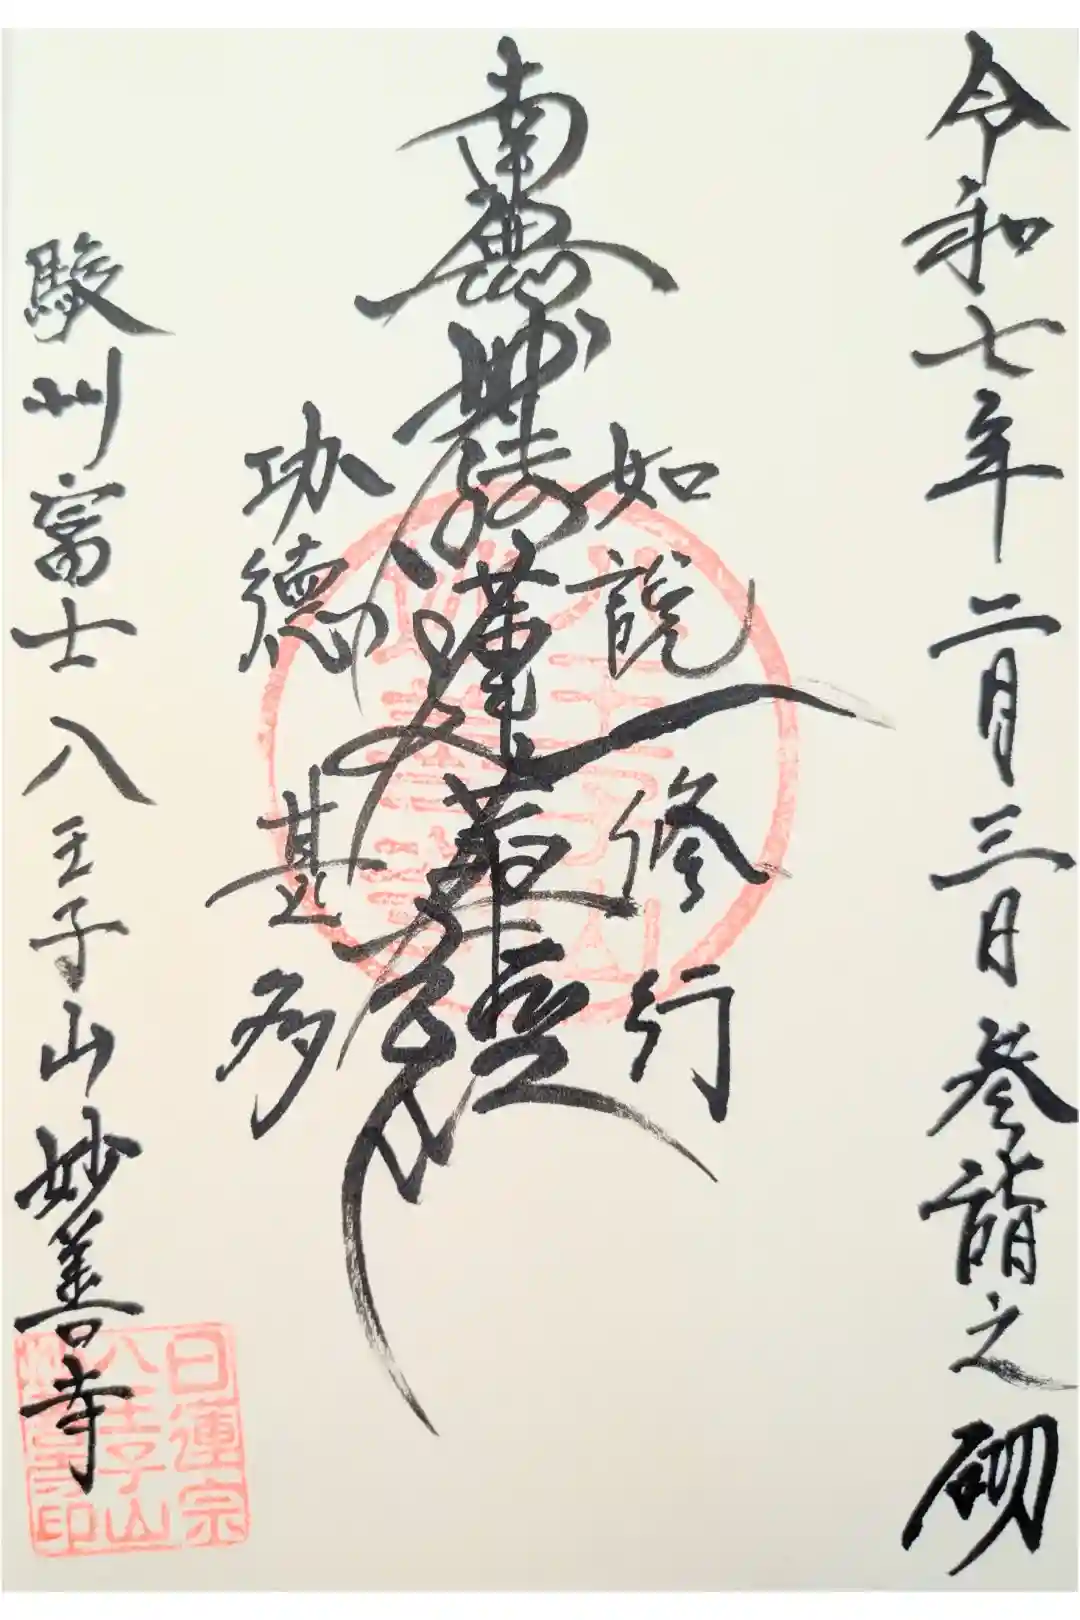 令和七年二月三日 参詣之砌
如説修行
南無妙法蓮華経
功徳甚多
駿州富士八王子山妙善寺
八王子山
妙善寺
日蓮宗
八王子山
妙善寺印